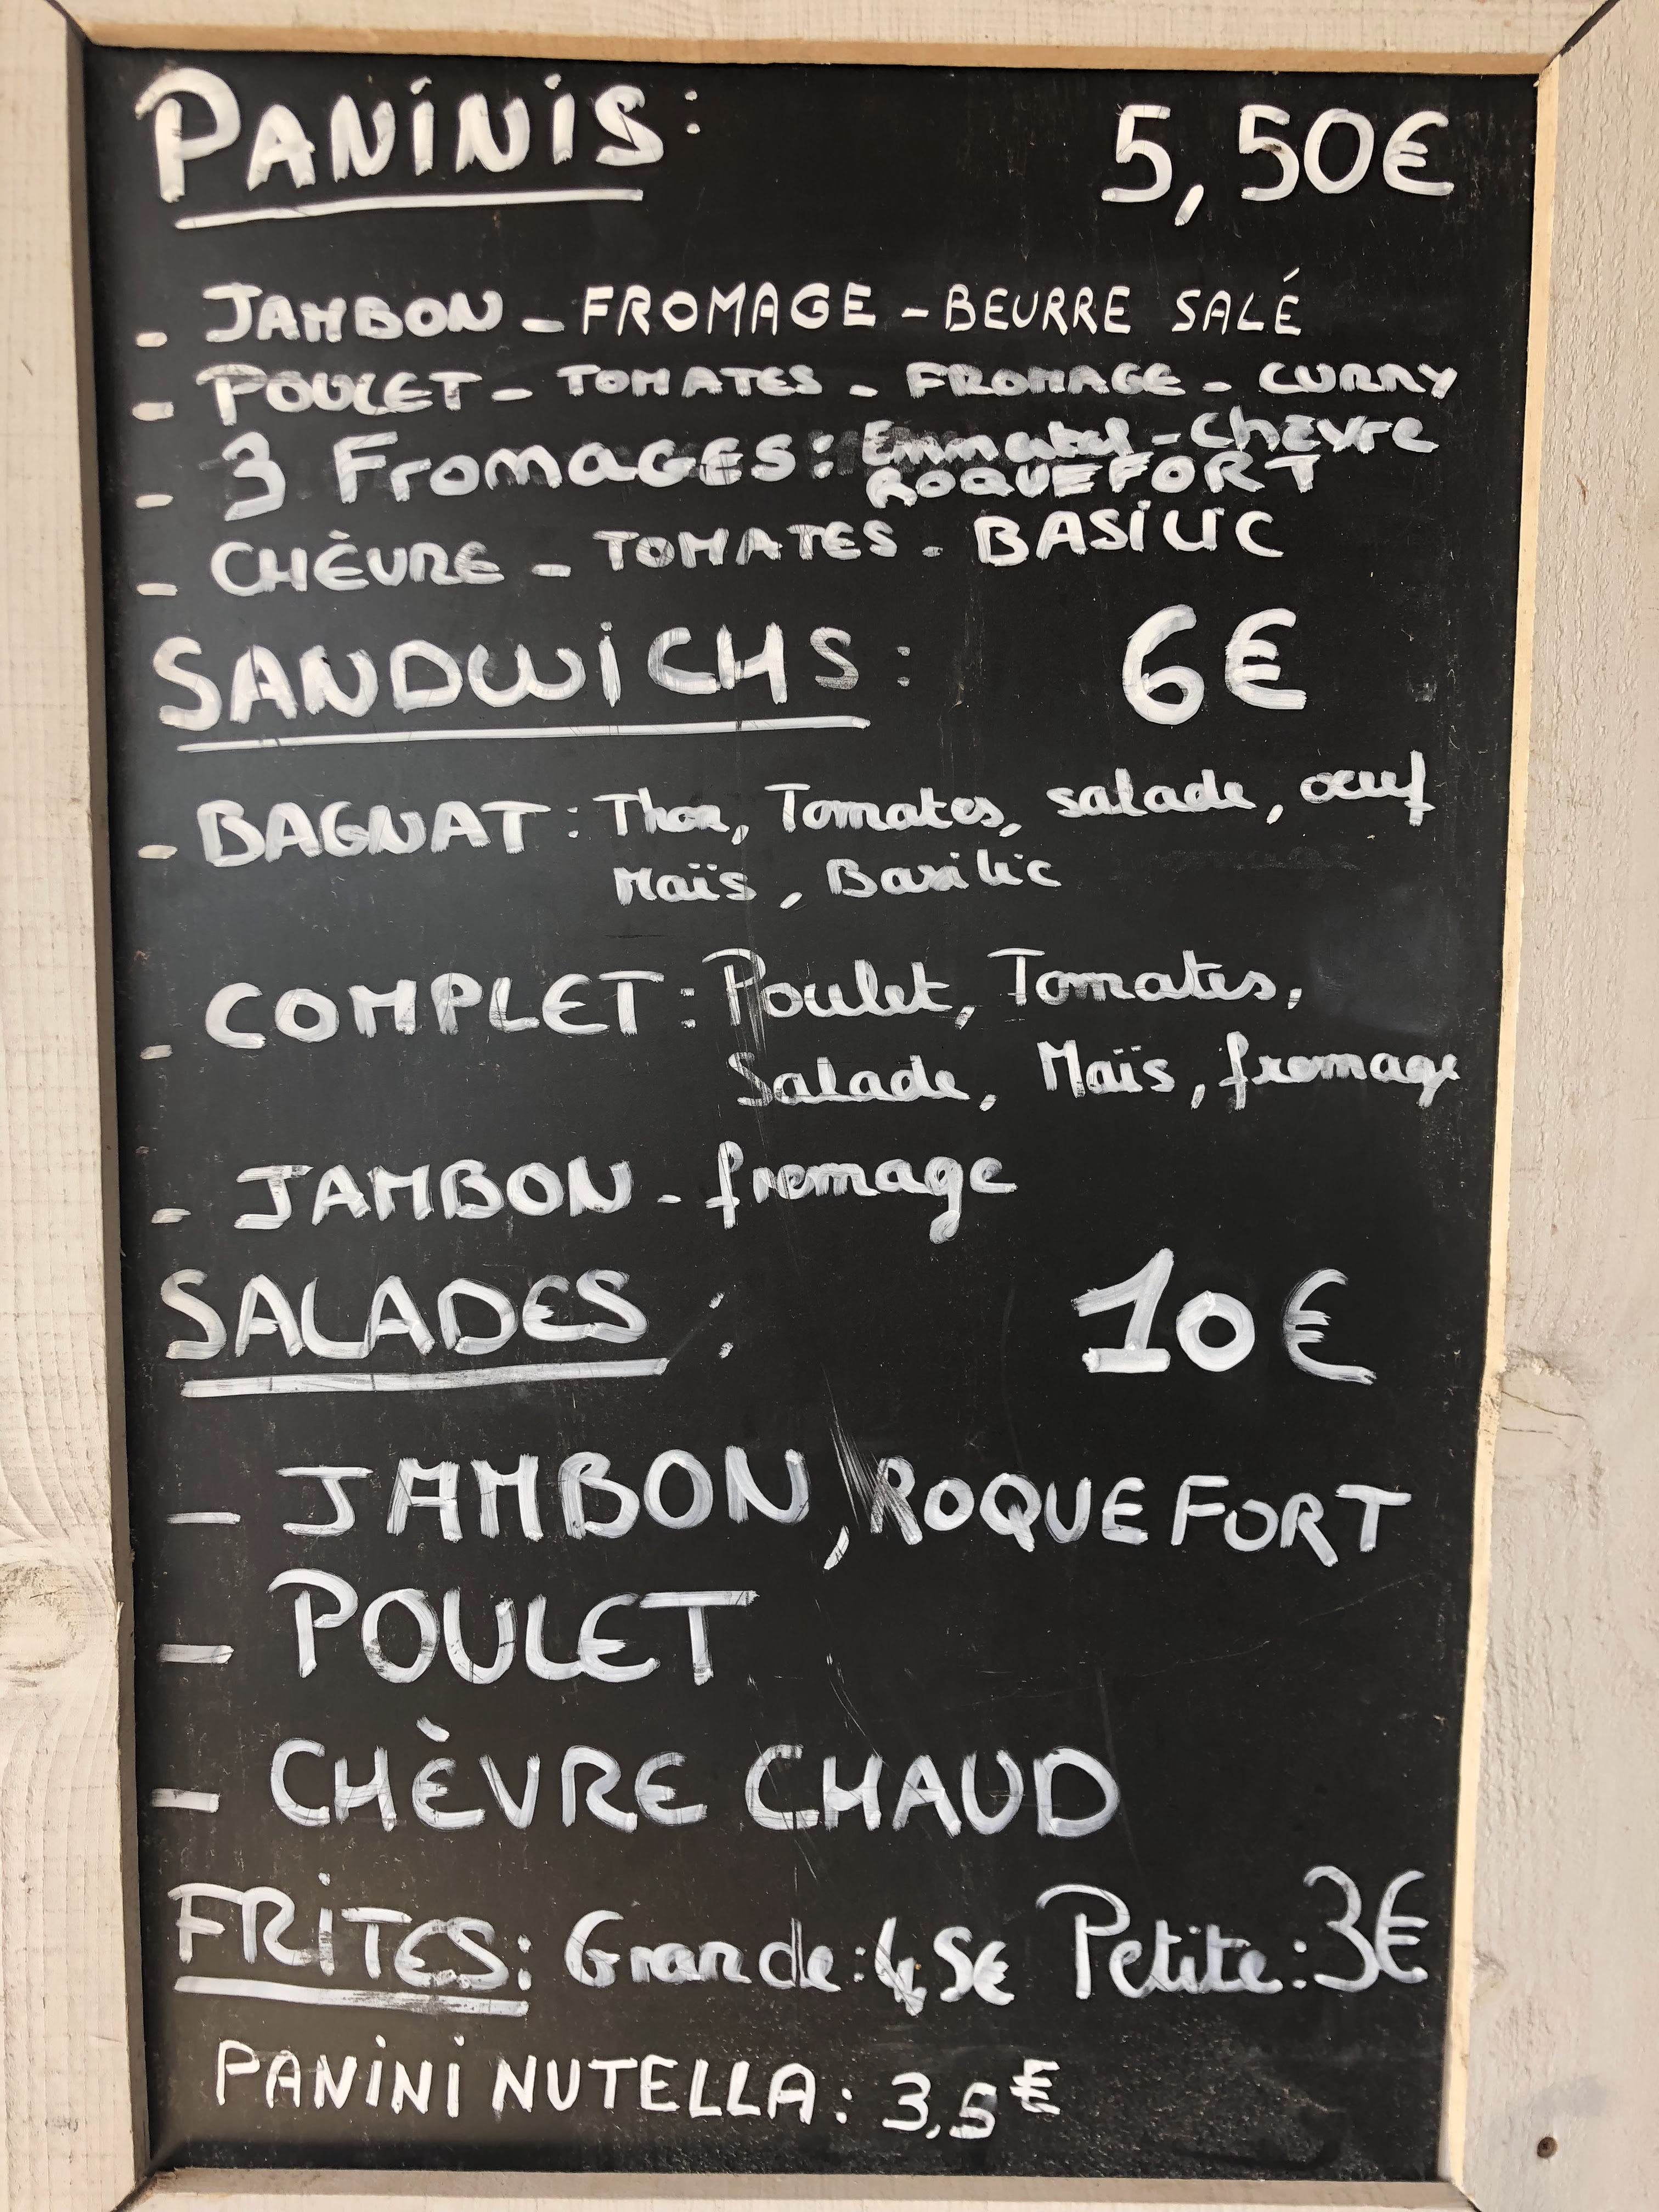 PANINIS: 5,50€
- JAMBON - FROMAGE - BEURRE SALÉ
- POULET - TOMATES - FROMAGE - CURRY
- 3 FromaGES: Emmental - Chèvre
ROQUEFORT
- CHÈVRE - TOMATES - BASILIC
SANDWICHS: 6€
- BAGNAT: Thon, Tomates, salade, œuf
Maïs, Basilic
- COMPLET: Poulet, Tomates,
Salade, Maïs, fromage
- JAMBON - fromage
SALADES: 10€
- JAMBON, ROQUEFORT
- POULET
- CHÈVRE CHAUD
FRITES: Grande: 4,5€ Petite: 3€
PANINI NUTELLA: 3,5€